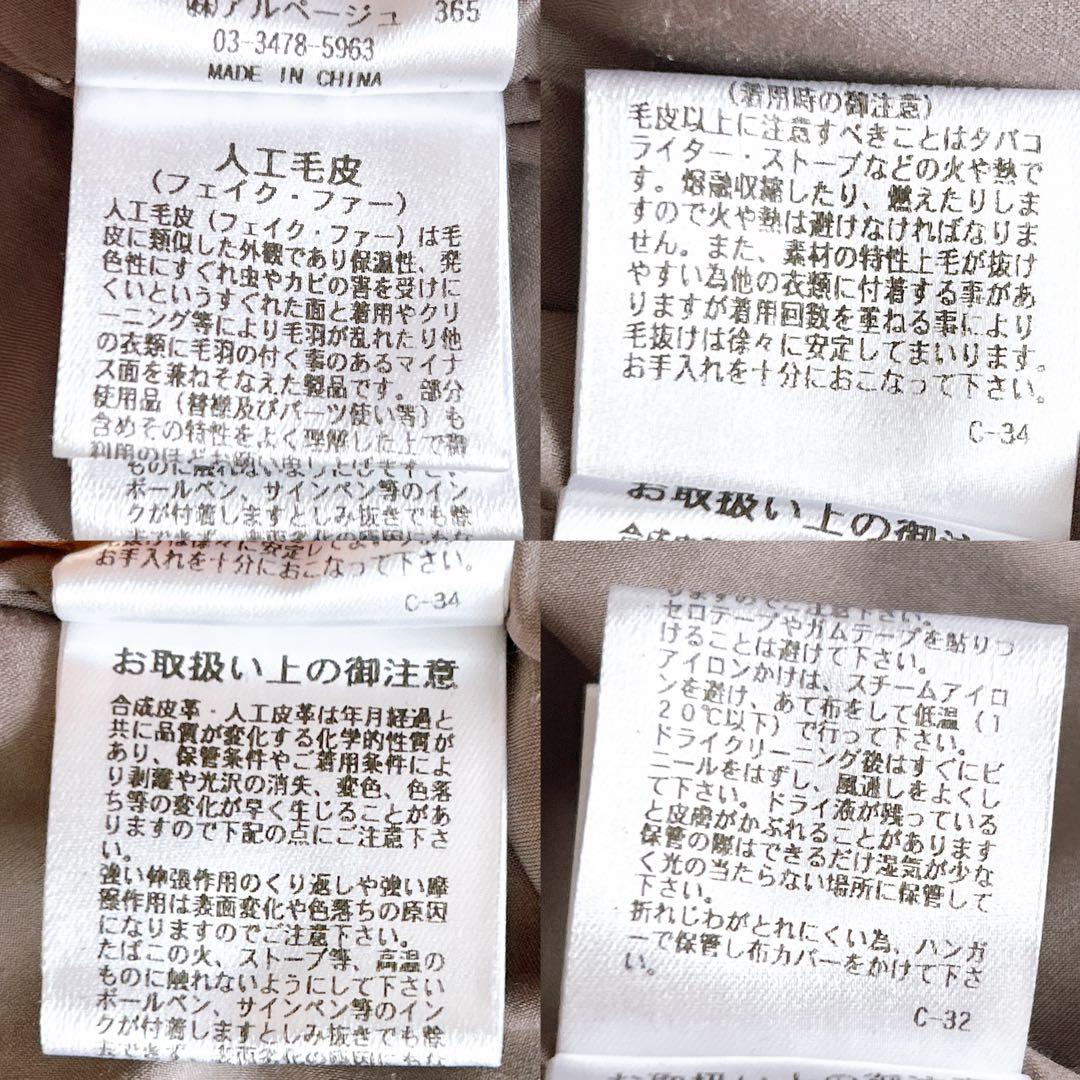 ㈱アルページュ 365
03-3478-5963
MADE IN CHINA
人工毛皮
(フェイク・ファー)
人工毛皮(フェイク・ファー)は毛
皮に類似した外観であり保温性、発
色性にすぐれ虫やカビの害を受けに
くいというすぐれた面と着用やクリ
ーニング等により毛羽が乱れたり他
の衣類に毛羽の付く事のあるマイナ
ス面を兼ねそなえた製品です。部分
使用品(替襟及びパーツ使い等)も
含めその特性をよく理解した上で御
利用のほどお願い
ものに触れない
ボールペン、サインペン等のイン
クが付着しますとしみ抜きでも除
(着用時の御注意)
毛皮以上に注意すべきことはタバコ
ライター・ストーブなどの火や熱で
す。熔融収縮したり、燃えたりしま
すので火や熱は避けなければなりま
せん。また、素材の特性上毛が抜け
やすい為他の衣類に付着する事があ
りますが着用回数を重ねる事により
毛抜けは徐々に安定してまいります。
お手入れを十分におこなって下さい。
C-34
お取扱い上の御注
お手入れを十分におこなって下さい。
C-34
お取扱い上の御注意
合成皮革・人工皮革は年月経過と
共に品質が変化する化学的性質が
あり、保管条件やご着用条件によ
り剥離や光沢の消失、変色、色落
ち等の変化が早く生じることがあ
りますので下記の点にご注意下さ
い。
強い伸張作用のくり返しや強い摩
擦作用は表面変化や色落ちの原因
になりますのでご注意下さい。
たばこの火、ストーブ等、高温の
ものに触れないようにして下さい
ボールペン、サインペン等のイン
クが付着しますとしみ抜きでも除
りますのでご注意下さい。
セロテープやガムテープを貼りつ
けることは避けて下さい。
アイロンかけは、スチームアイロ
ンを避け、あて布をして低温(1
20℃以下)で行って下さい。
ドライクリーニング後はすぐにビ
ニールをはずし、風通しをよくし
て下さい。ドライ液が残っている
と皮膚がかぶれることがあります
保管の際はできるだけ湿気が少な
く光の当たらない場所に保管して
下さい。
折れじわがとれにくい為、ハンガ
ーで保管し布カバーをかけて下さ
い。
C-32